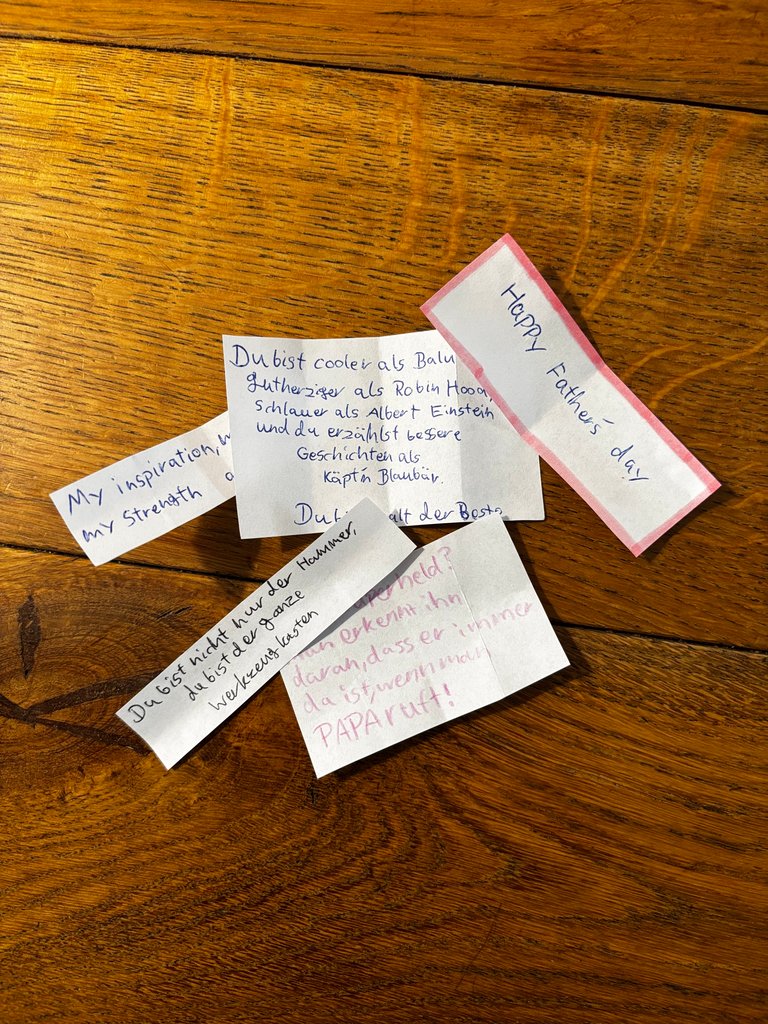 Happy Fathers' day
Du bist cooler als Balu
gutherziger als Robin Hood,
schlauer als Albert Einstein
und du erzählst bessere
Geschichten als
Käpt'n Blaubär.
Du der Beste
My inspiration,
my strength
Du bist nicht nur der Hammer,
du bist der ganze
Werkzeugkasten
erkennt ihn
daran, dass er immer
da ist, wenn man
PAPA ruft!